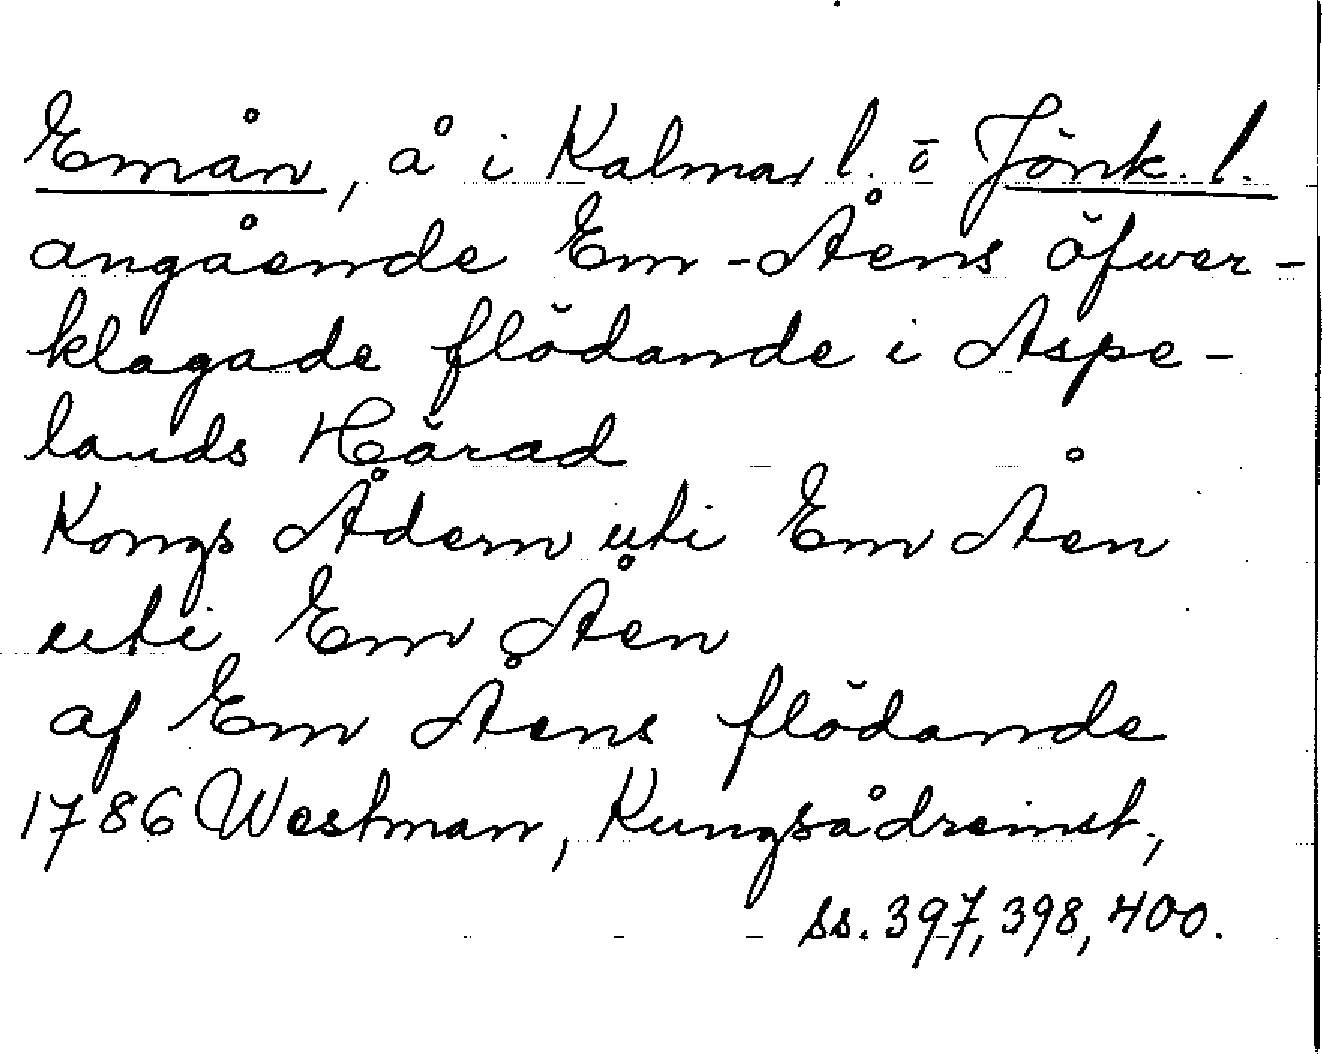 Emån, å i Kalmar l. o Jönk. l.
angående Em-Åens öfwer-
klagade flödande i Aspe-
lands Härad
Kongs Ådern uti Em Åen
uti Em Åen
af Em Åens flödande
1786 Westman, Kungsådreinst,
ss. 397, 398, 400.